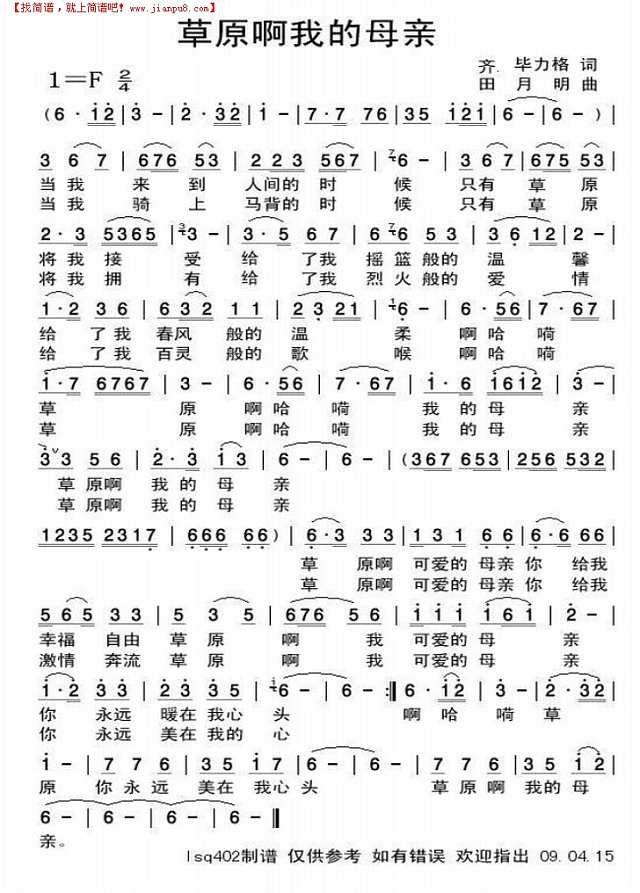 【找简谱，就上简谱吧！www.jianpu8.com】
草原啊我的母亲
1=F 2/4
齐.毕力格 词
田 月 明 曲
(6·12|3-|2·32|1-|7·7 76|35 121|6-|6-)|
3 6 7|676 53|2 23 567|6-|3 6 7|675 53|
当我 来 到 人间的 时 候 只有 草 原
当我 骑 上 马背的 时 候 只有 草 原
2·3 5365|3-|3·5 67|6·6 53|3 6 12|2-|
将我 接 受 给 了我 摇 篮般的 温 馨
将我 拥 有 给 了我 烈 火般的 爱 情
1·2 36|632 11|23 21|6-|7·67|
给 了我 春风 般的 温 柔 啊哈 嗬
给 了我 百灵 般的 歌 喉 啊哈 嗬
1·7 6767|3-|6·56|7·67|1·6 1612|3-|
草 原 啊 哈 嗬 我 的 母 亲
草 原 啊 哈 嗬 我 的 母 亲
33 56|2·3 1 2|6-|6-|(367 653|256 532|
草 原啊 我 的 母 亲
草 原啊 我 的 母 亲
1235 2317|666 66)|6·3 33|131 66|6·6 66|
草 原啊 可爱的 母亲 你 给我
草 原啊 可爱的 母亲 你 给我
565 33|5·5 3|676 56|111|161|2-|
幸福 自由 草 原 啊 我 可爱的 母 亲
激情 奔流 草 原 啊 我 可爱的 母 亲
1·2 33|23 35|6-|6-:‖6·12|3-|2·32|
你 永远 暖在 我心 头 啊 哈 嗬 草
你 永远 美在 我的 心
1-|776|35 17|6-|6-|776|35 12|
原 你 永 远 美在 我心 头 草 原 啊 我的 母
6-|6-|6-|6-‖
亲。
lsq402制谱 仅供参考 如有错误 欢迎指出 09.04.15